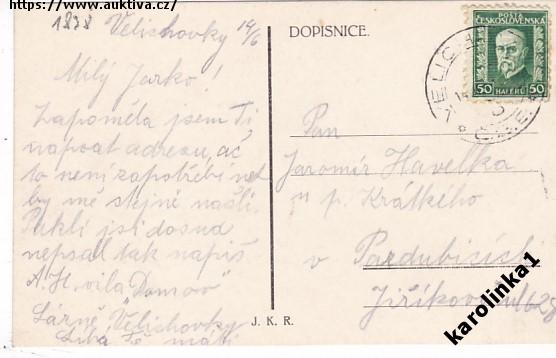 https://www.auktiva.cz/
1878
Velichovky 14/6
Milý Jarko!
Zapoměla jsem Ti
napsat adresu, ač
to není zapotřebí neb
by mě stejně našli.
Pakli jsi dosud
nepsal tak napiš
A. H. vila "Domov"
Lázně Velichovky
Líbá Tě máti
DOPISNICE.
POŠTA
ČESKOSLOVENSKÁ
50 HALÉŘŮ 50
Pan
Jaromír Havelka
u p. Krátkého
v Pardubicích
Jiříkova ul 628
J. K. R.
karolinka1